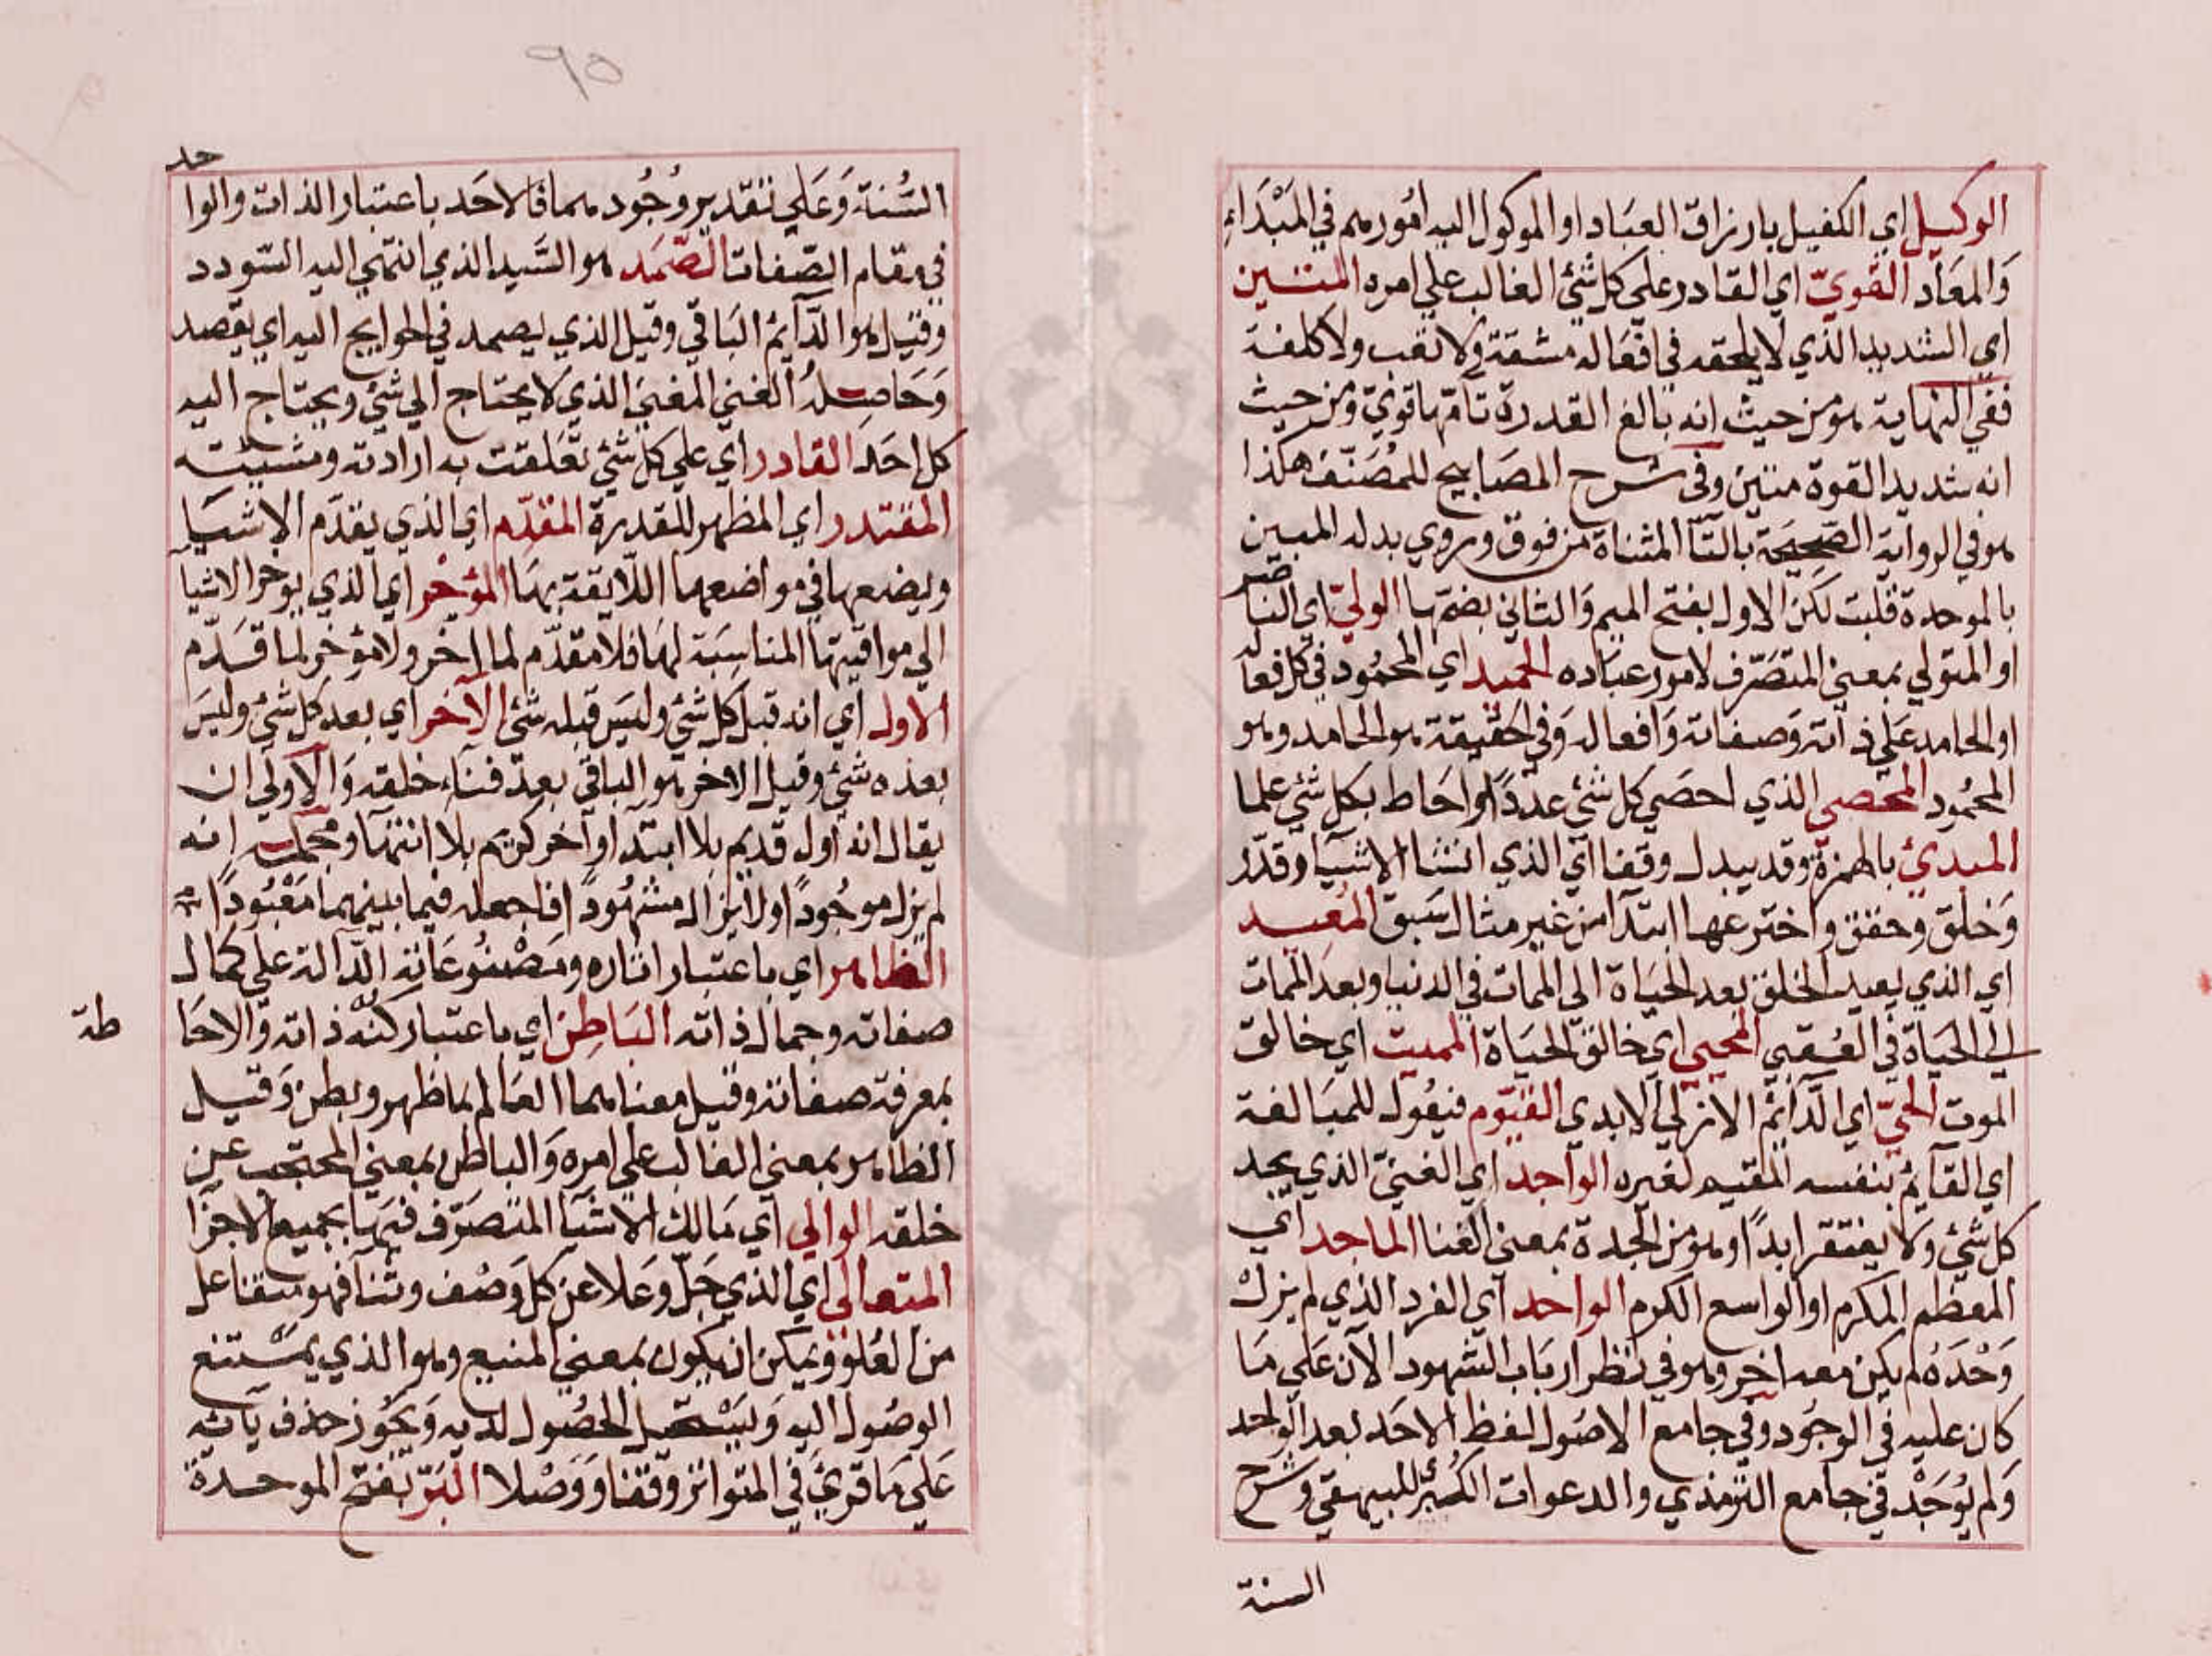 الوكيل اي الكفيل بارزاق العباد او الموكول اليه امورهم في المبداء
والمعاد القويّ اي القادر علي كل شئ الغالب علي امره المتين
اي الشديد الذي لا يلحقه في افعاله مشقة ولا تعب ولا كلفة
ففي النهاية هو من حيث انه بالغ القدرة تامّها قويّ ومن حيث
انه شديد القوة متين وفي شرح المصابيح للمصنّف هكذا
هو في الرواية الصحيحة بالتآ المثناة من فوق وروي بدله المبين
بالموحدة قلت لكن الاول بفتح الميم والثاني بضمها الوليّ اي الناصر
او المتولي بمعني المتصرّف لامور عباده الحميد اي المحمود في كل فعاله
او الحامد علي ذاته وصفاته وافعاله وفي الحقيقة هو الحامد وهو
المحمود المحصي الذي احصي كل شئ عدداً واحاط بكل شئ علما
المبدئ بالهمزة وقد يبدل وقفا اي الذي انشا الاشيآ وقدّر
وخلق وحقق واخترعها ابتدآ من غير مثال سبق المعيد
اي الذي يعيد الخلق بعد الحياة الي الممات في الدنيا وبعد الممات
الي الحياة في العقبي المحيي اي خالق الحياة المميت اي خالق
الموت الحيّ اي الدآئم الازلي الابدي القيّوم فيعول للمبالغة
اي القآئم بنفسه المقيم لغيره الواجد اي الغنيّ الذي يجد
كل شئ ولا يفتقر ابداً وهو من الجدة بمعني الغنا الماجد اي
المعظم المكرم او الواسع الكرم الواحد اي الفرد الذي لم يزل
وحده لم يكن معه اخر وهو في نظر ارباب الشهود الآن علي ما
كان عليه في الوجود وفي جامع الاصول لفظ الاحد بعد الواحد
ولم يوجد في جامع الترمذي والدعوات الكبير للبيهقي وشرح
السنة
٩٥
السُّنة وَعَلي تقدير وُجُودهما فالاحَد باعتبار الذات والواحد
في مقام الصّفات الصّمَد هو السَّيد الذي انتهي اليه السّودد
وقيل هو الدّآئم الباقي وقيل الذي يصمد في الحوايج اليه اي يقصد
وَحَاصِلهُ الغني المغني الذي لا يحتاج الي شئ ويحتاج اليه
كل احَد القادر اي علي كل شئ تعَلقت به ارادته ومشيئته
المقتدر اي المظهر للقدرة المقدّم اي الذي يقدّم الاشيآ
ويضعها في مواضعها اللايقة بهَا المؤخر اي الذي يوخر الاشيا
الي مواقيتها المناسبة لها فلا مقدّم لما اخر ولا مؤخر لما قدّم
الاول اي انه قبل كل شئ وليس قبله شئ الآخر اي بعد كل شئ وليسَ
بعده شئ وقيل الاخر هو الباقي بعد فنآء خلقه وَالاولي ان
يقال انه اول قديم بلا ابتدآ وآخر كريم بلا انتها ومجمله انه
لم يزل موجُوداً ولا يزال مشهُوداً فاجعله فيما بينهما مَعْبُوداً
الظاهر اي باعتبار اثاره ومَصْنُوعَاته الدّالة علي كمال
صفاته وجمال ذاته البَاطِن اي باعتبار كنه ذاته وَالاحاطة
بمعرفة صفاته وقيل معناهما العَالم بما ظهر وبطن وَقيل
الظاهر بمعني الغالب علي امره وَالباطن بمعني المحتجب عن
خلقه الوالي اي مَالك الاشيآ المتصَرّف فيهَا بجميع الاجزآ
المتعالي اي الذي جَلّ وعَلا عن كل وَصْف وثنا فهو متفاعل
من العُلوّ ويمكن ان يكون بمعني المنيع وهو الذي يمتنع
الوصُول اليه وَيستحيل الحصُول لديه وَيجُوز حذف يآئه
عَلي مَا قرئ في المتواتر وقفا وَوَصْلا البَرّ بفتح الموحدة